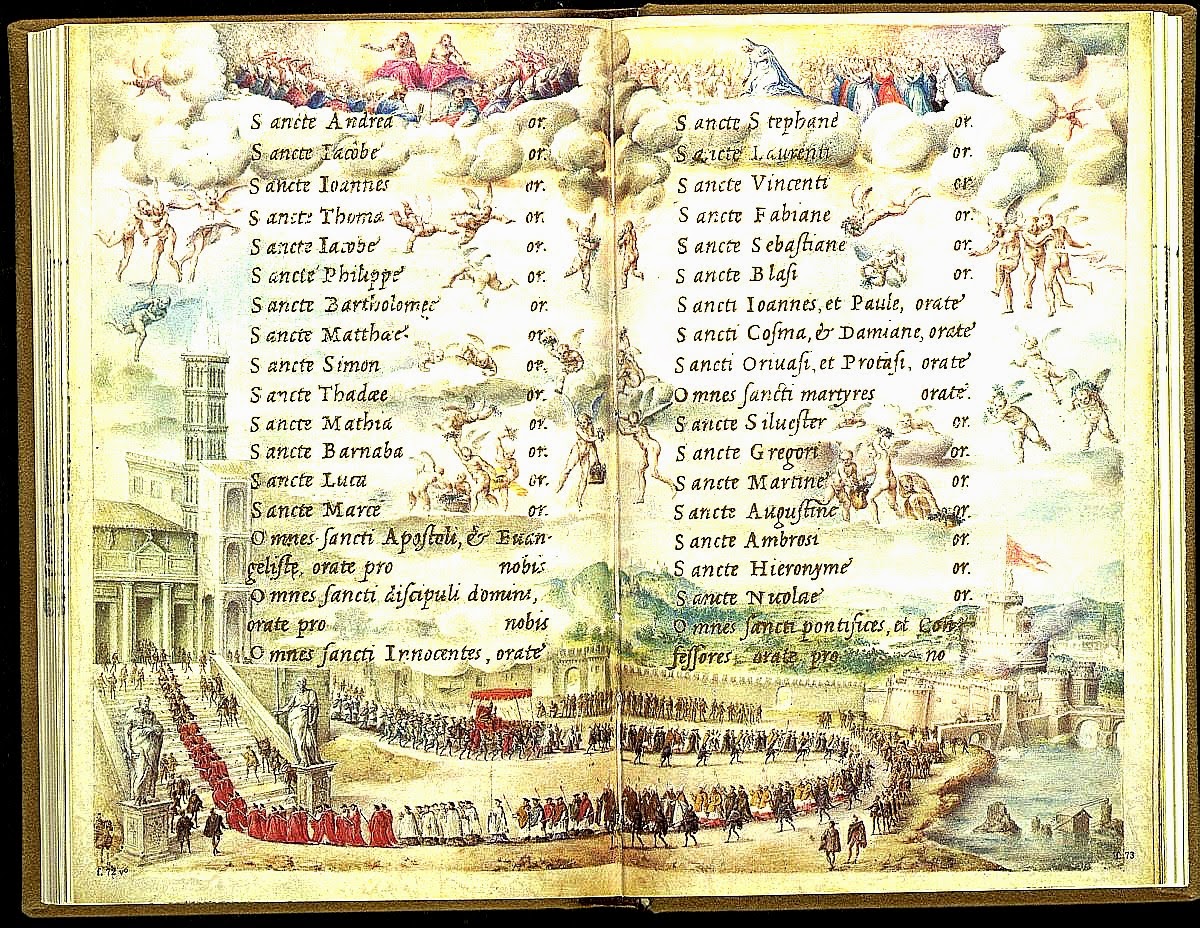 Sancte Andrea or.
Sancte Iacobe or.
Sancte Ioannes or.
Sancte Thoma or.
Sancte Iacobe or.
Sancte Philippe or.
Sancte Bartholomęe or.
Sancte Matthæe or.
Sancte Simon or.
Sancte Thadæe or.
Sancte Mathia or.
Sancte Barnaba or.
Sancte Luca or.
Sancte Marce or.
Omnes sancti Apostoli, & Euan-
gelistę, orate pro nobis
Omnes sancti discipuli domini,
orate pro nobis
Omnes sancti Innocentes, orate
f. 72 vº
Sancte Stephane or.
Sancte Laurenti or.
Sancte Vincenti or.
Sancte Fabiane or.
Sancte Sebastiane or.
Sancte Blasi or.
Sancti Ioannes, et Paule, orate
Sancti Cosma, & Damiane, orate
Sancti Oruasi, et Protasi, orate
Omnes sancti martyres orate.
Sancte Siluester or.
Sancte Gregori or.
Sancte Martine or.
Sancte Augustine or.
Sancte Ambrosi or.
Sancte Hieronyme or.
Sancte Nicolae or.
Omnes sancti pontifices, et Con-
fessores, orate pro no
f. 73